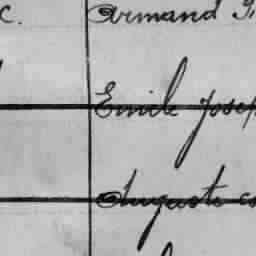 c. Armand
Emile Josep
Auguste